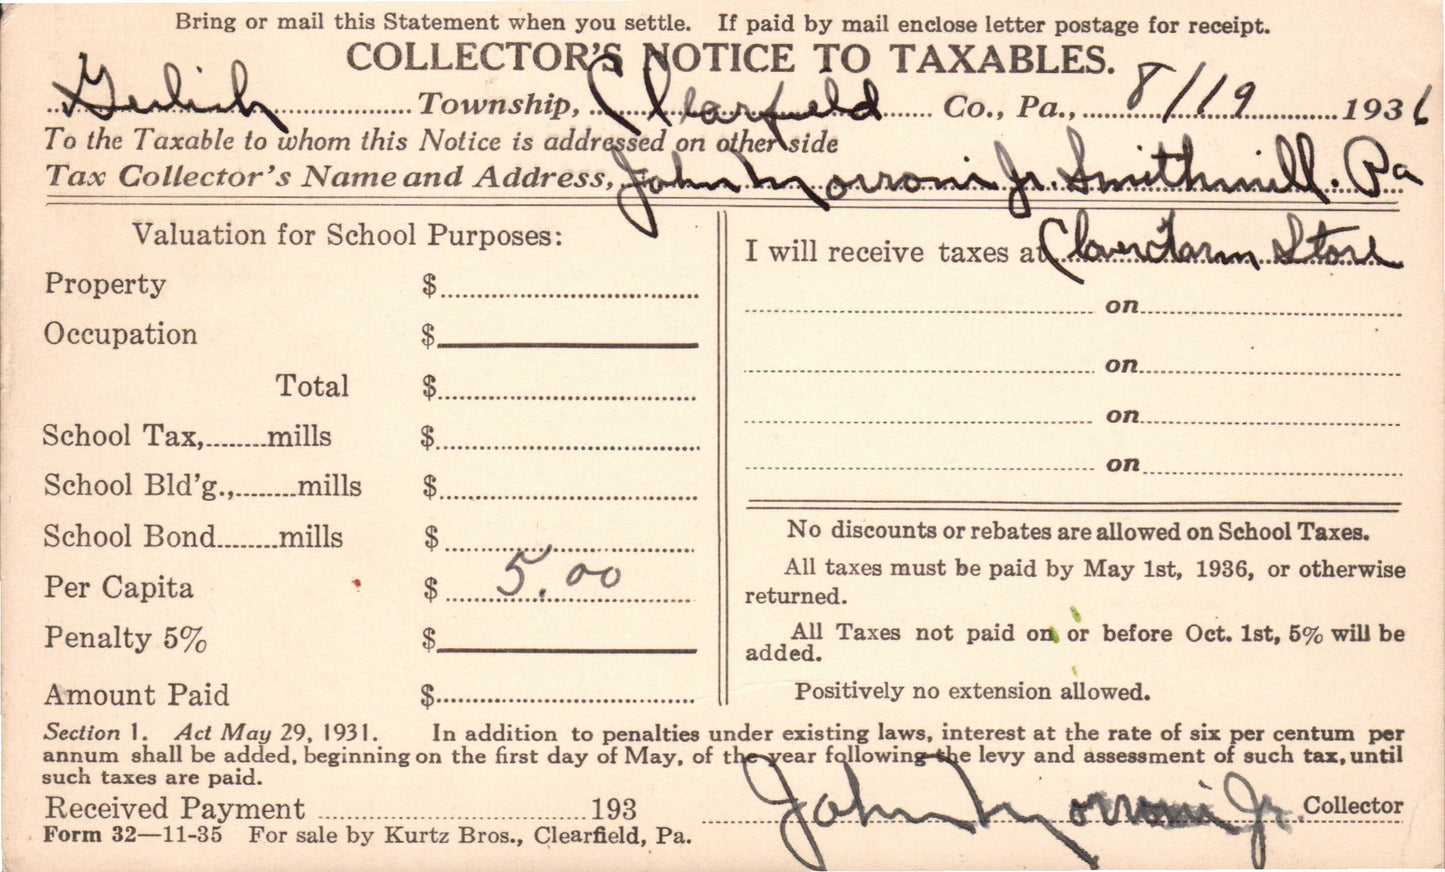 Bring or mail this Statement when you settle. If paid by mail enclose letter postage for receipt.
COLLECTOR'S NOTICE TO TAXABLES.
Gulich Township, Clearfield Co., Pa., 8/19 1936
To the Taxable to whom this Notice is addressed on other side
Tax Collector's Name and Address, John Morroni Jr. Smithmill. Pa
Valuation for School Purposes:
Property $
Occupation $
Total $
School Tax, mills $
School Bld'g., mills $
School Bond mills $
Per Capita $ 5.00
Penalty 5% $
Amount Paid $
I will receive taxes at Clover Farm Store
on
on
on
on
No discounts or rebates are allowed on School Taxes.
All taxes must be paid by May 1st, 1936, or otherwise
returned.
All Taxes not paid on or before Oct. 1st, 5% will be
added.
Positively no extension allowed.
Section 1. Act May 29, 1931. In addition to penalties under existing laws, interest at the rate of six per centum per
annum shall be added, beginning on the first day of May, of the year following the levy and assessment of such tax, until
such taxes are paid.
Received Payment 193 John Morroni Jr. Collector
Form 32—11-35 For sale by Kurtz Bros., Clearfield, Pa.